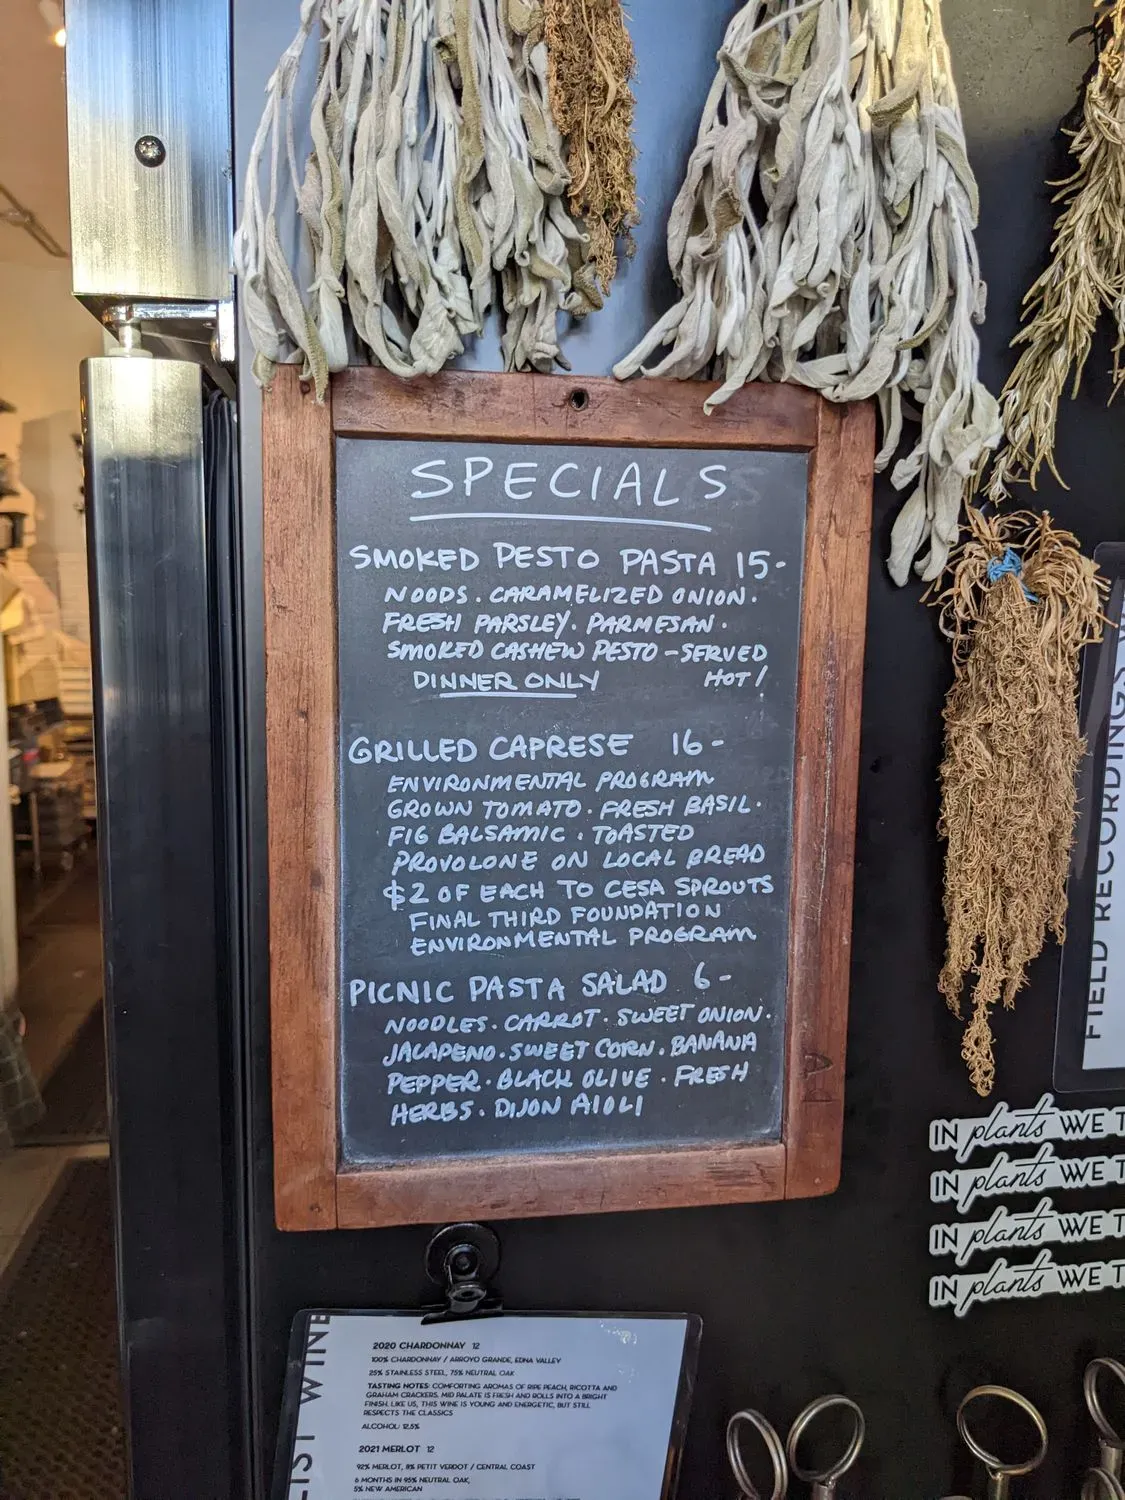 SPECIALS
SMOKED PESTO PASTA 15-
NOODS. CARAMELIZED ONION.
FRESH PARSLEY. PARMESAN.
SMOKED CASHEW PESTO - SERVED
DINNER ONLY HOT!
GRILLED CAPRESE 16-
ENVIRONMENTAL PROGRAM
GROWN TOMATO. FRESH BASIL.
FIG BALSAMIC. TOASTED
PROVOLONE ON LOCAL BREAD
$2 OF EACH TO CESA SPROUTS
FINAL THIRD FOUNDATION
ENVIRONMENTAL PROGRAM
PICNIC PASTA SALAD 6-
NOODLES. CARROT. SWEET ONION.
JALAPENO. SWEET CORN. BANANA
PEPPER. BLACK OLIVE. FRESH
HERBS. DIJON AIOLI
FIELD RECORDINGS
IN plants WE T
IN plants WE T
IN plants WE T
IN plants WE T
LIST WINE
2020 CHARDONNAY 12
100% CHARDONNAY / ARROYO GRANDE, EDNA VALLEY
25% STAINLESS STEEL, 75% NEUTRAL OAK
TASTING NOTES: COMFORTING AROMAS OF RIPE PEACH, RICOTTA AND
GRAHAM CRACKERS. MID PALATE IS FRESH AND ROLLS INTO A BRIGHT
FINISH. LIKE US, THIS WINE IS YOUNG AND ENERGETIC, BUT STILL
RESPECTS THE CLASSICS
ALCOHOL: 12.5%
2021 MERLOT 12
92% MERLOT, 8% PETIT VERDOT / CENTRAL COAST
6 MONTHS IN 95% NEUTRAL OAK,
5% NEW AMERICAN